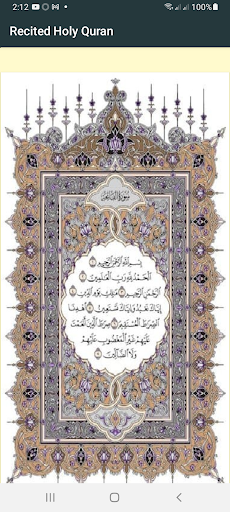 2:12
100%
Recited Holy Quran
سورة الفاتحة
بسم الله الرحمن الرحيم
الحمد لله رب العلمين
الرحمن الرحيم ملك يوم الدين
إياك نعبد وإياك نستعين اهدنا
الصرط المستقيم صرط الذين أنعمت
عليهم غير المغضوب عليهم
ولا الضالين